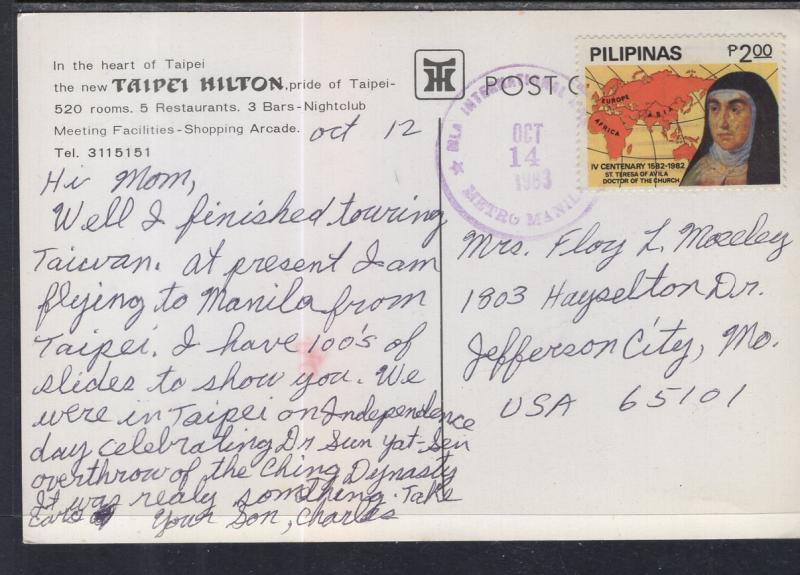 In the heart of Taipei
the new TAIPEI HILTON, pride of Taipei-
520 rooms. 5 Restaurants. 3 Bars-Nightclub
Meeting Facilities-Shopping Arcade.
Tel. 3115151
Oct 12
Hi Mom,
Well I finished touring
Taiwan. At present I am
flying to Manila from
Taipei. I have 100's of
slides to show you. We
were in Taipei on Independence
day celebrating Dr Sun Yat-Sen
overthrow of the Ching Dynasty
It was realy something. Take
Care
Your Son, Charles
POST C
MLA INTERNATIONAL
OCT
14
1983
METRO MANIL
PILIPINAS
₱2.00
EUROPE
ASIA
AFRICA
IV CENTENARY 1582-1982
ST. TERESA OF AVILA
DOCTOR OF THE CHURCH
Mrs. Floy L. Mozeley
1803 Hayselton Dr.
Jefferson City, Mo.
USA 65101